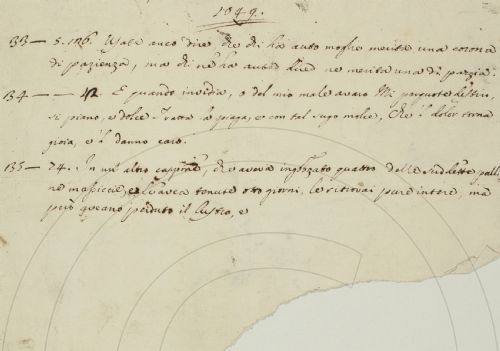 1849.
133 — S. 126. Usasi anco dire che chi ha auto moglie merita una corona
di pazienza, ma chi ne ha auto due ne merita una di pazzia.
134 — E quando invidia, o del mio male avaro Mi porgeste
si piano, e dolce Tratta la piaga, e con tal sugo molce, Che 'l dolor torna
gioia, e 'l danno caro.
135 — 74. In un altro cappone, che aveva ingozzato quattro delle suddette palli
ne massiccie, e l'avea tenute otto giorni, le ritrovai pure intere, ma
però aveano perduto il lustro, e